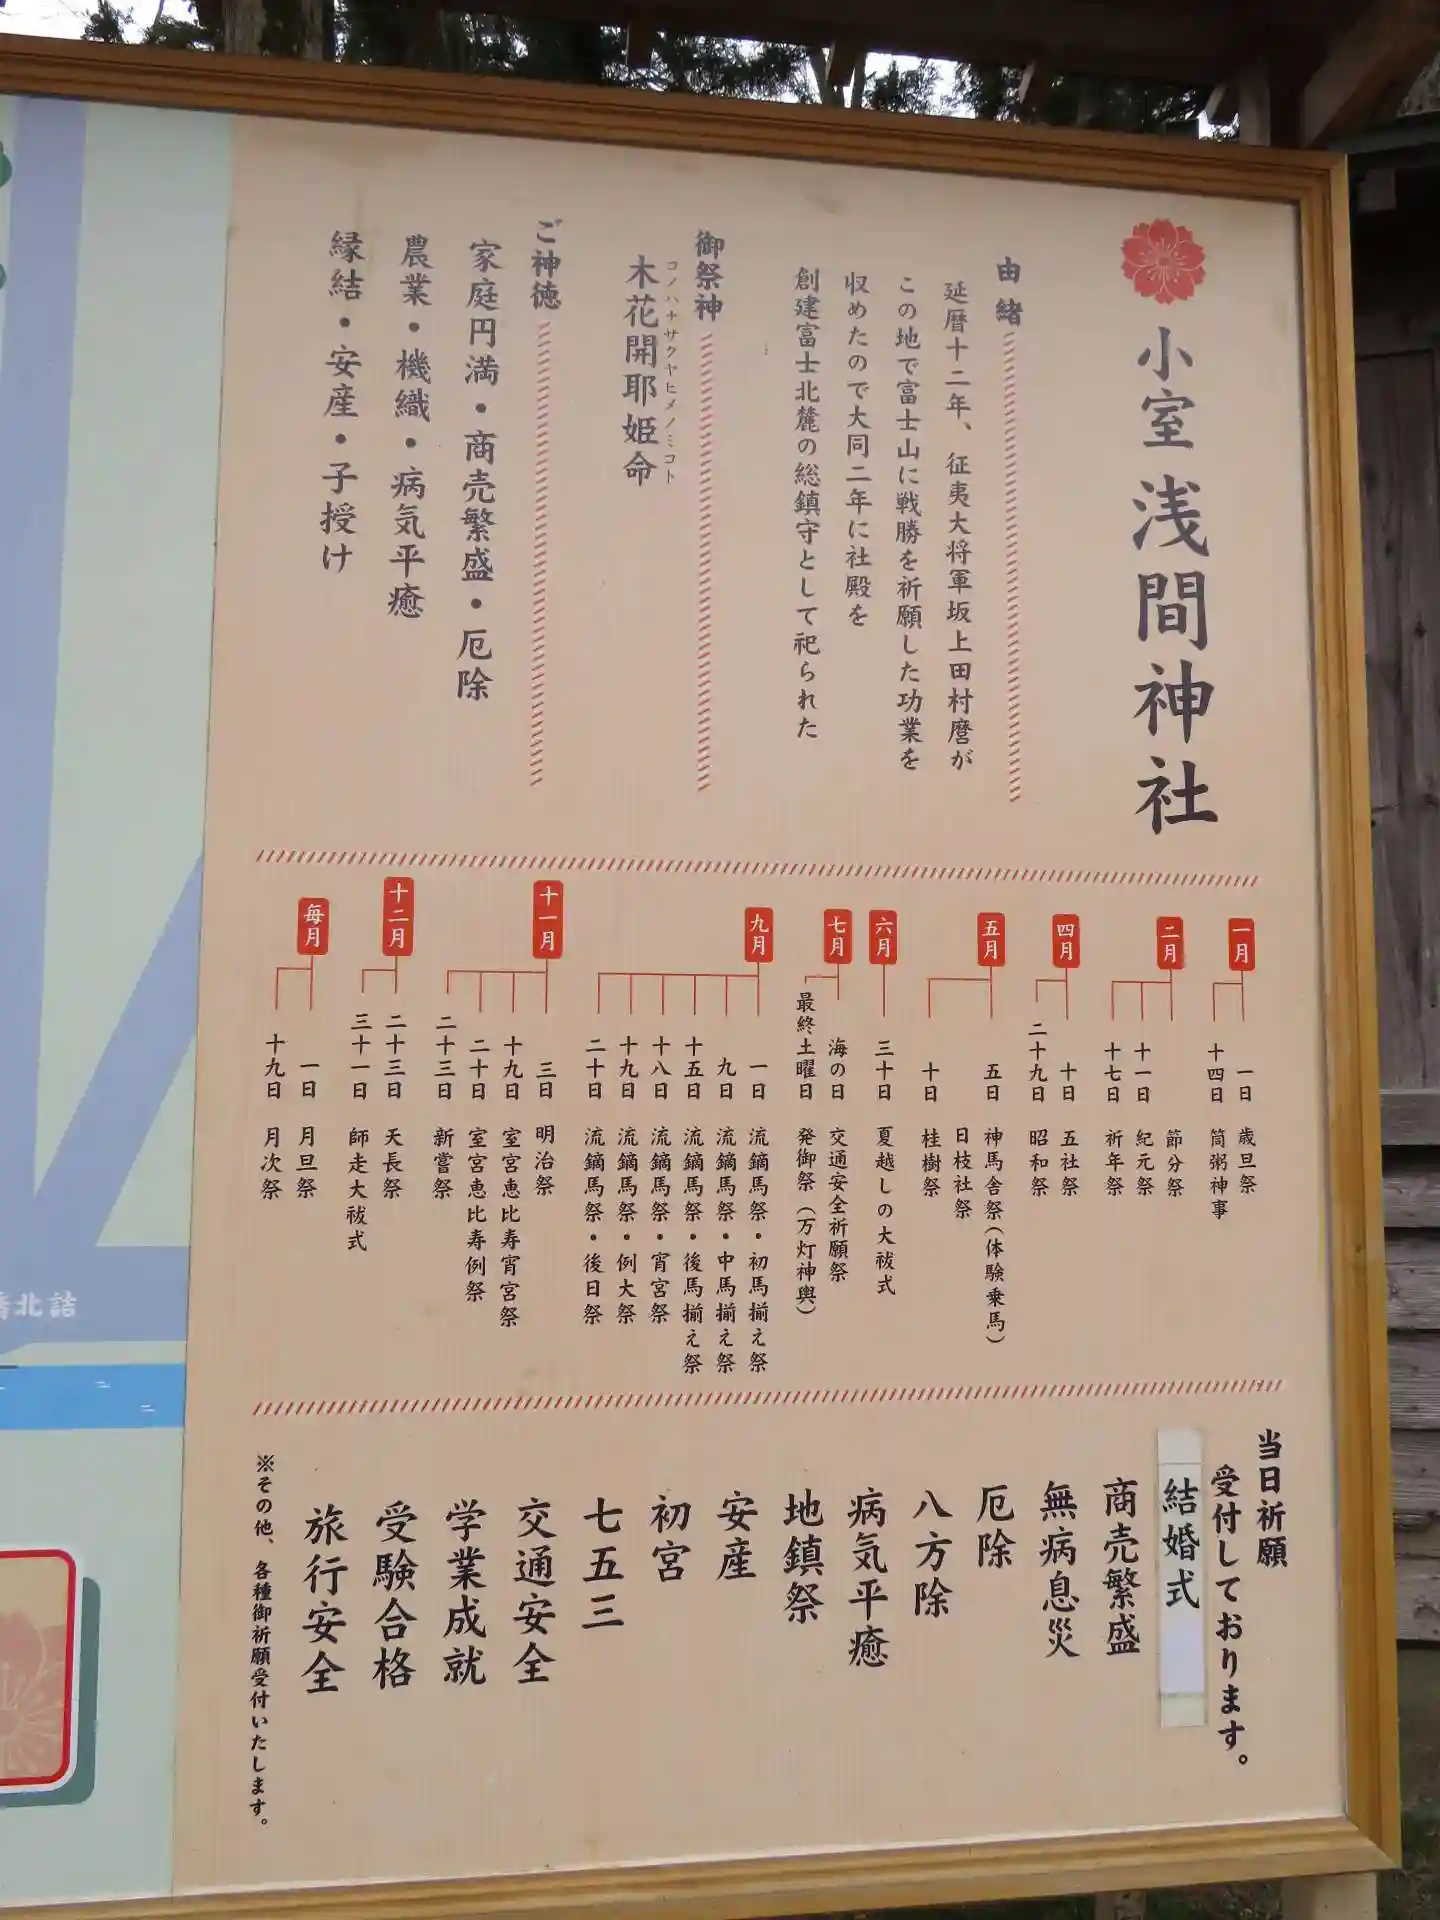 小室浅間神社
由緒
延暦十二年、征夷大将軍坂上田村麿が
この地で富士山に戦勝を祈願した功業を
収めたので大同二年に社殿を
創建富士北麓の総鎮守として祀られた
御祭神
コノハナサクヤヒメノミコト
木花開耶姫命
ご神徳
家庭円満・商売繁盛・厄除
農業・機織・病気平癒
縁結・安産・子授け
一月
一日 歳旦祭
十四日 筒粥神事
二月
節分祭
十一日 紀元祭
十七日 祈年祭
四月
十日 五社祭
二十九日 昭和祭
五月
五日 神馬舎祭(体験乗馬)
日枝社祭
十日 桂樹祭
六月
三十日 夏越しの大祓式
七月
海の日 交通安全祈願祭
最終土曜日 発御祭(万灯神輿)
九月
一日 流鏑馬祭・初馬揃え祭
九日 流鏑馬祭・中馬揃え祭
十五日 流鏑馬祭・後馬揃え祭
十八日 流鏑馬祭・宵宮祭
十九日 流鏑馬祭・例大祭
二十日 流鏑馬祭・後日祭
十一月
三日 明治祭
十九日 室宮恵比寿宵宮祭
二十日 室宮恵比寿例祭
二十三日 新嘗祭
十二月
二十三日 天長祭
三十一日 師走大祓式
毎月
一日 月旦祭
十九日 月次祭
当日祈願
受付しております。
結婚式
商売繁盛
無病息災
厄除
八方除
病気平癒
地鎮祭
安産
初宮
七五三
交通安全
学業成就
受験合格
旅行安全
※その他、各種御祈願受付いたします。
北詰